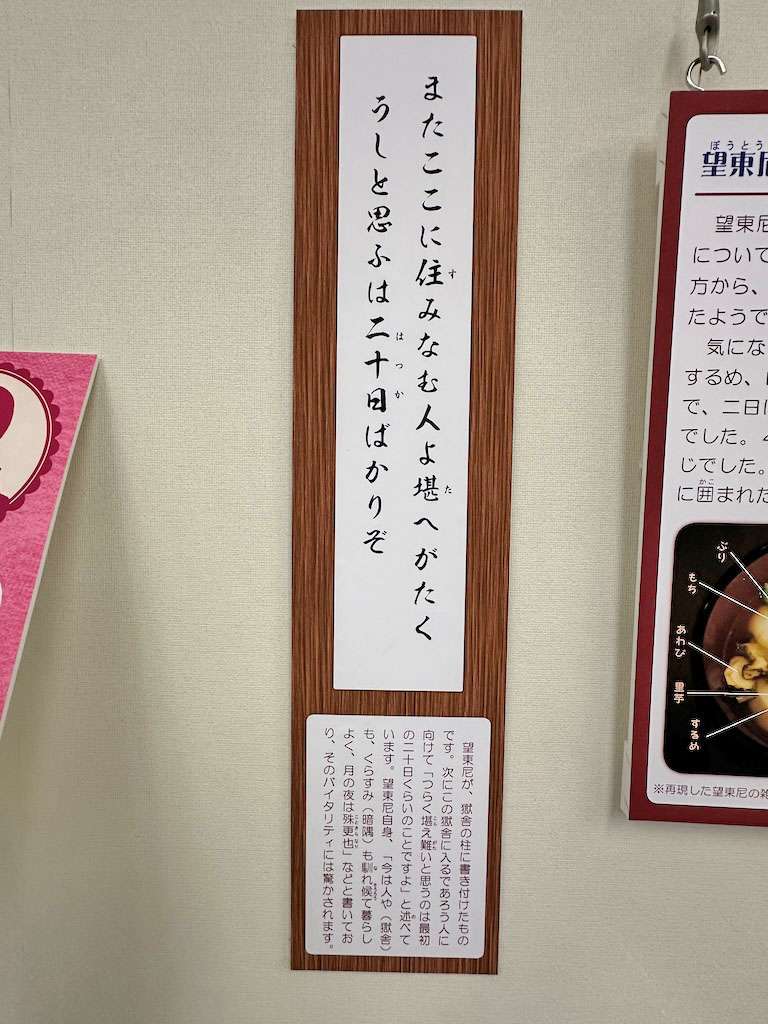 またここに住みなむ人よ堪へがたく
うしと思ふは二十日ばかりぞ
す
た
はつか
望東尼が、獄舎の柱に書き付けたもの
です。次にこの獄舎に入るであろう人に
向けて「つらく堪え難いと思うのは最初
の二十日くらいのことですよ」と述べて
います。望東尼自身、「今は人や（獄舎）
も、くらすみ（暗隅）も馴れ候て暮らし
よく、月の夜は殊更也」などと書いてお
り、そのバイタリティには驚かされます。
ぼうとう
望東尼
望東尼
について
方から、
たようで
気にな
するめ、
で、二日
でした。
じでした。
に囲まれた
かこ
ぶり
もち
あわび
里芋
するめ
※再現した望東尼の雑